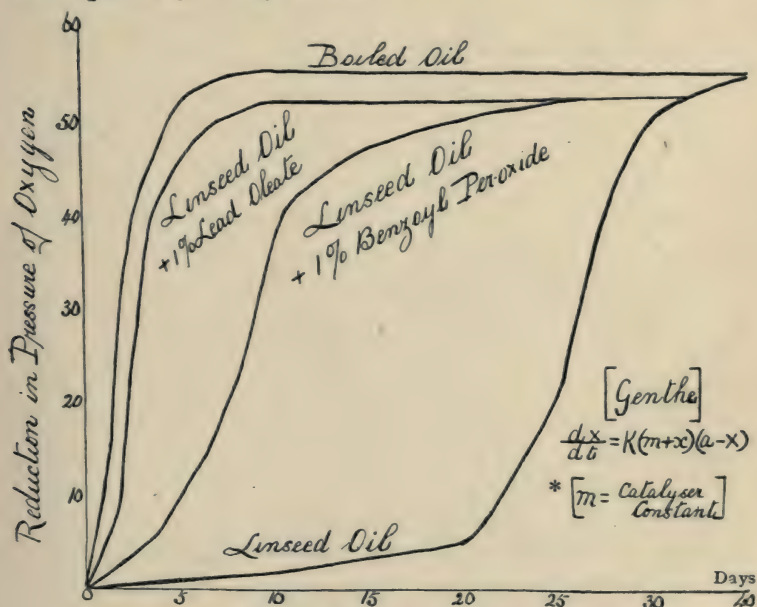 60
50
40
30
20
10
Reduction in Pressure of Oxygen
Boiled Oil
Linseed Oil
+1% Lead Oleate
Linseed Oil
+ 1% Benzoyl Per-oxide
Linseed Oil
[Genthe]
dx/dt = K(m+x)(a-x)
* [m = Catalyser
Constant]
Days
0 5 10 15 20 25 30 40